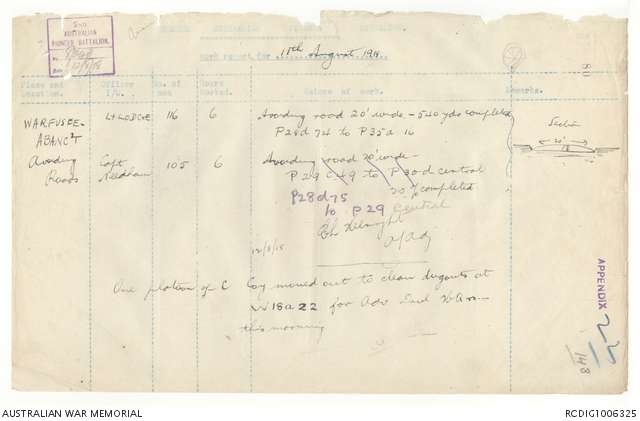 2ND
AUSTRALIAN
PIONEER BATTALION.
No.
Date 12/8/18
PIONEER BATTALION
work report for 11th August 1918
Place and Location. Officer I/c. No. of men Hours Worked. Nature of work. Remarks.
WARFUSEE- Lt LODGE 116 6 Avoiding road 20' wide - 540 yds completed
ABANCT P28d 74 to P35a 16
Section
20'
Avoiding Capt 105 6 Avoiding road 20' wide
Roads Needham P29c49 to P30d central
20% completed
P28d75
to P29 central
A/Adj
12/8/18
One platoon of C Coy moved out to clean dugouts at
W18a22 for Adv
this morning
80
APPENDIX
148
AUSTRALIAN WAR MEMORIAL
RCDIG1006325